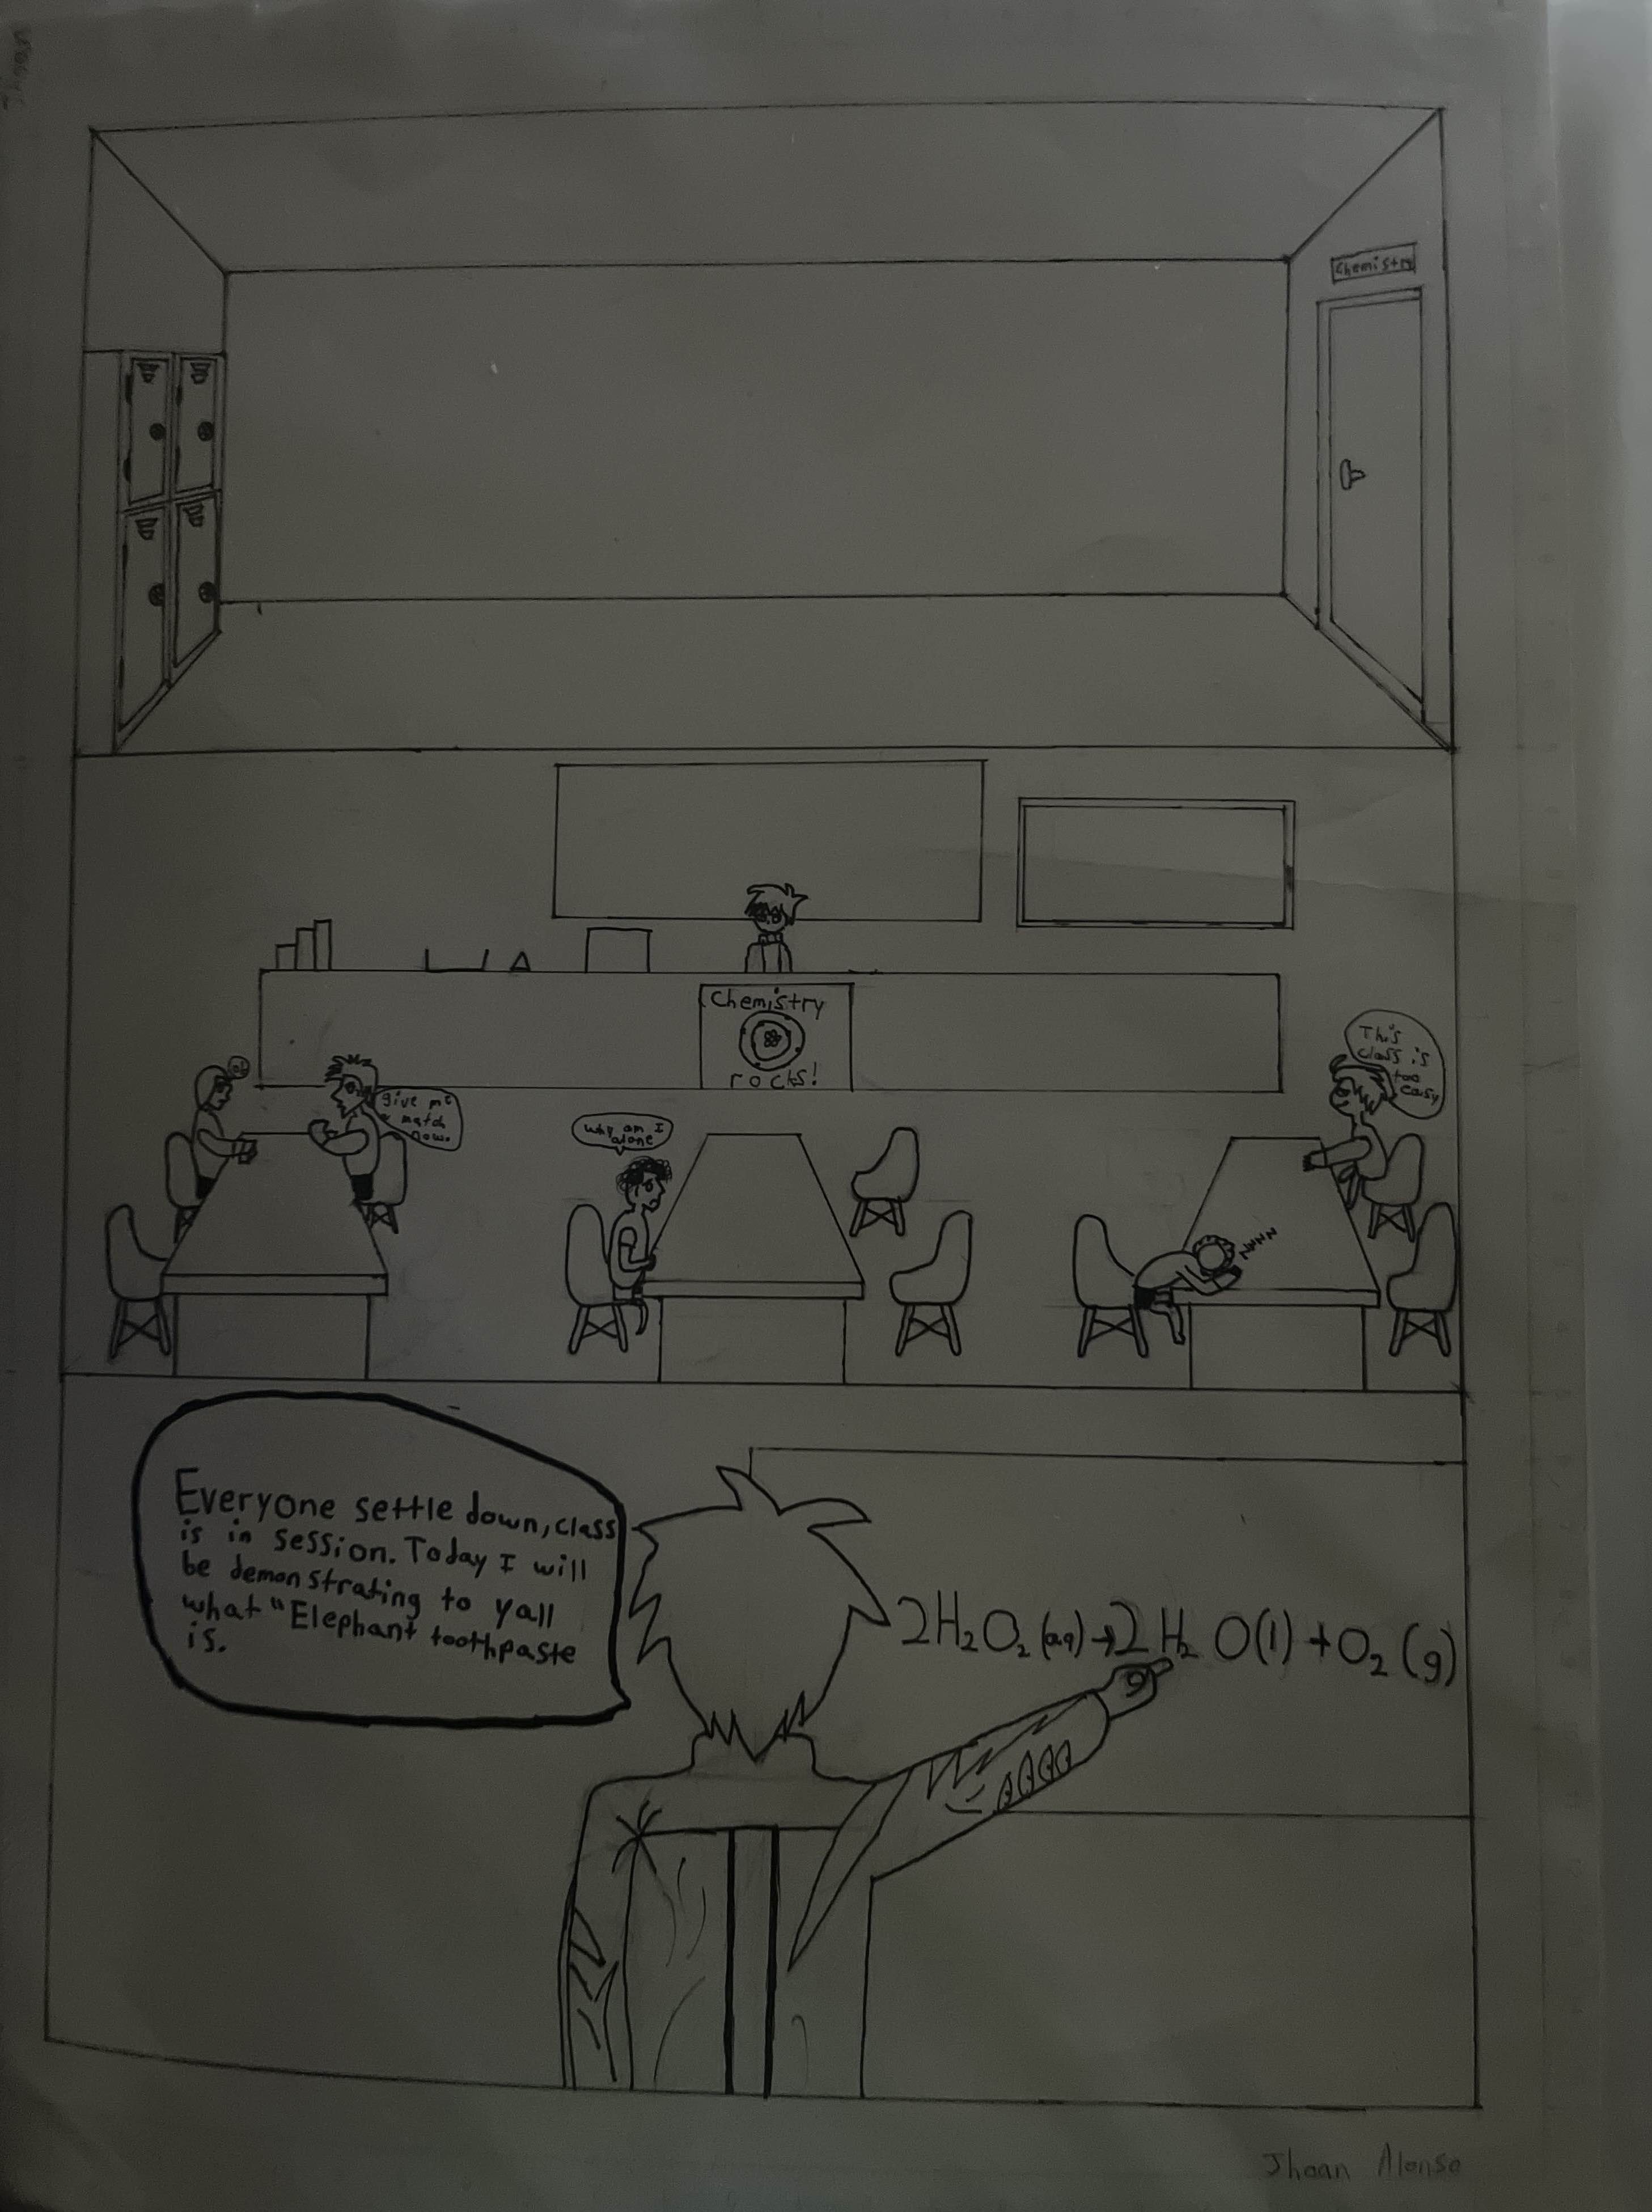 Chemistry
Chemistry
rocks!
give me
a match
now.
why am I
alone
This
class is
too
easy
zzzz
Everyone settle down, class
is in session. Today I will
be demonstrating to yall
what "Elephant toothpaste
is.
2H₂O₂(aq)→2H₂O(l)+O₂(g)
Jhoan Alonso